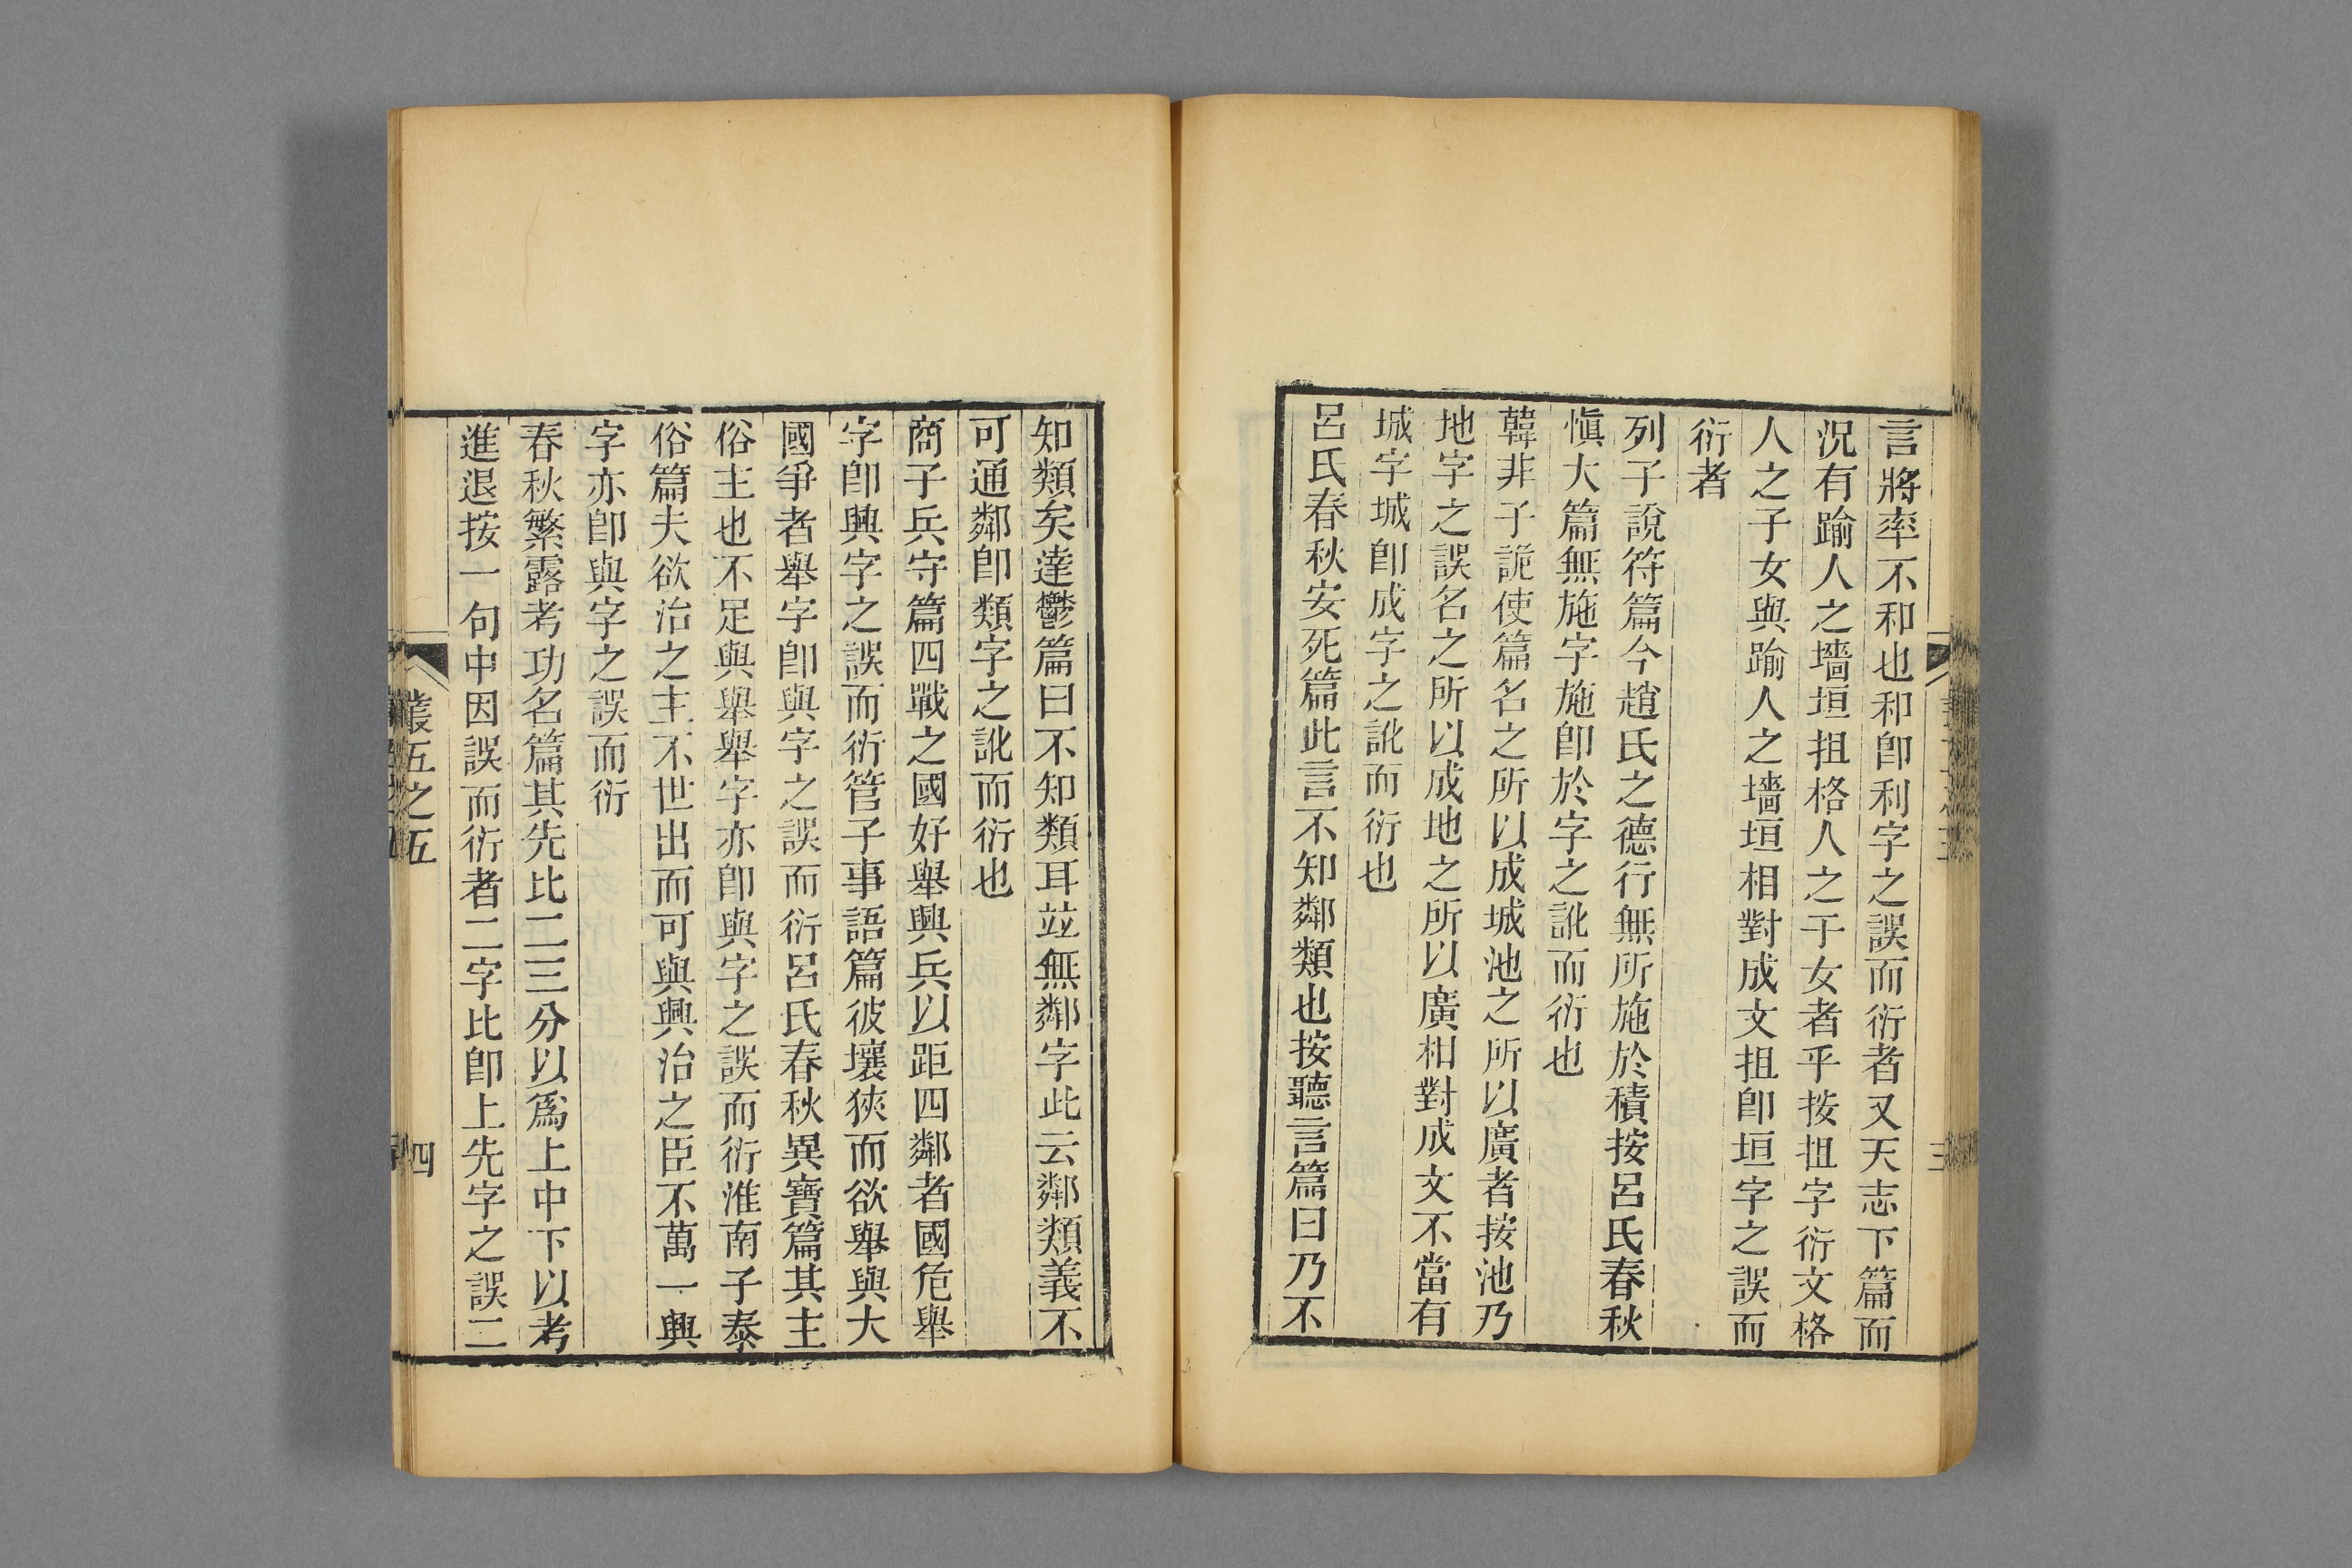 言將率不和也和卽利字之誤而衍者又天志下篇而
況有踰人之墻垣抯格人之子女者乎按抯字衍文格
人之子女與踰人之墻垣相對成文抯卽垣字之誤而
衍者
列子說符篇今趙氏之德行無所施於積按呂氏春秋
愼大篇無施字施卽於字之訛而衍也
韓非子詭使篇名之所以成城池之所以廣者按池乃
地字之誤名之所以成地之所以廣相對成文不當有
城字城卽成字之訛而衍也
呂氏春秋安死篇此言不知鄰類也按聽言篇曰乃不
知類矣達鬱篇曰不知類耳竝無鄰字此云鄰類義不
可通鄰卽類字之訛而衍也
商子兵守篇四戰之國好舉興兵以距四鄰者國危舉
字卽興字之誤而衍管子事語篇彼壤狹而欲舉與大
國爭者舉字卽與字之誤而衍呂氏春秋異寶篇其主
俗主也不足與舉舉字亦卽與字之誤而衍淮南子泰
俗篇夫欲治之主不世出而可與興治之臣不萬一興
字亦卽與字之誤而衍
春秋繁露考功名篇其先比二三分以爲上中下以考
進退按一句中因誤而衍者二字比卽上先字之誤二
叢五之五
四